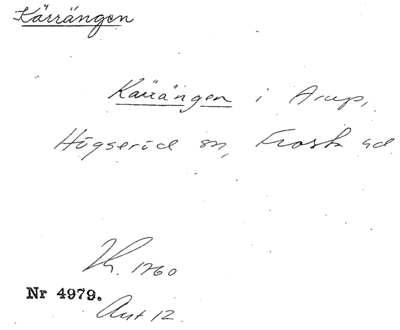 Kärrängen
Kärrängen i Arup,
Högseröd sn, Frosta hd
1760
Nr 4979.
Avt 12